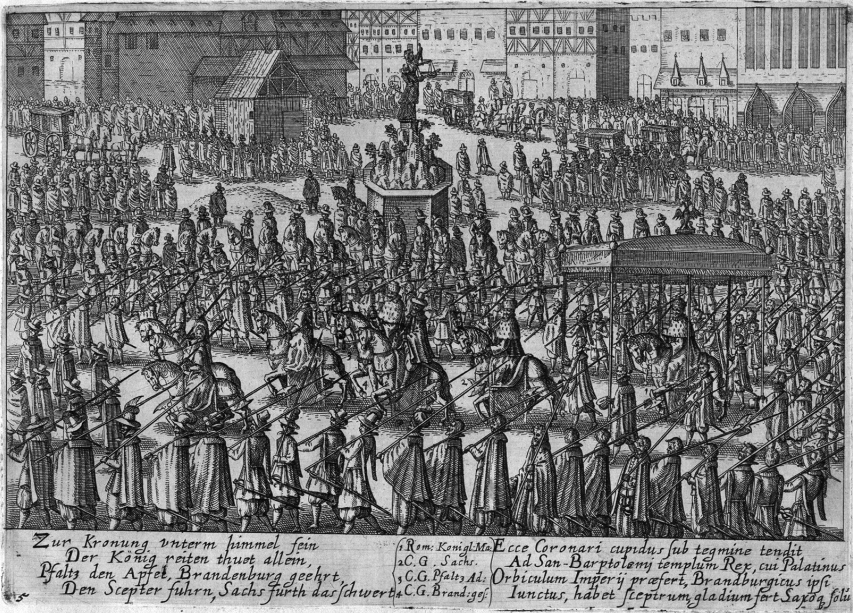 Zur Kronung vnterm himmel fein
Der König reiten thuet allein,
Pfaltz den Apfel, Brandenburg geehrt
Den Scepter fuhrn, Sachs furth das schwert
1 Rom: Konigl: Ma:
2 C. G. Sachs.
3 C. G. Pfaltz Ad:
4 C. G. Brand: ges:
Ecce Coronari cupidus sub tegmine tendit
Ad San-Barptolemj templum Rex, cui Palatinus
Orbiculum Imperij præfert, Brandburgicus ipsi
Iunctus, habet sceptrum, gladium fert Saxoq solu
5